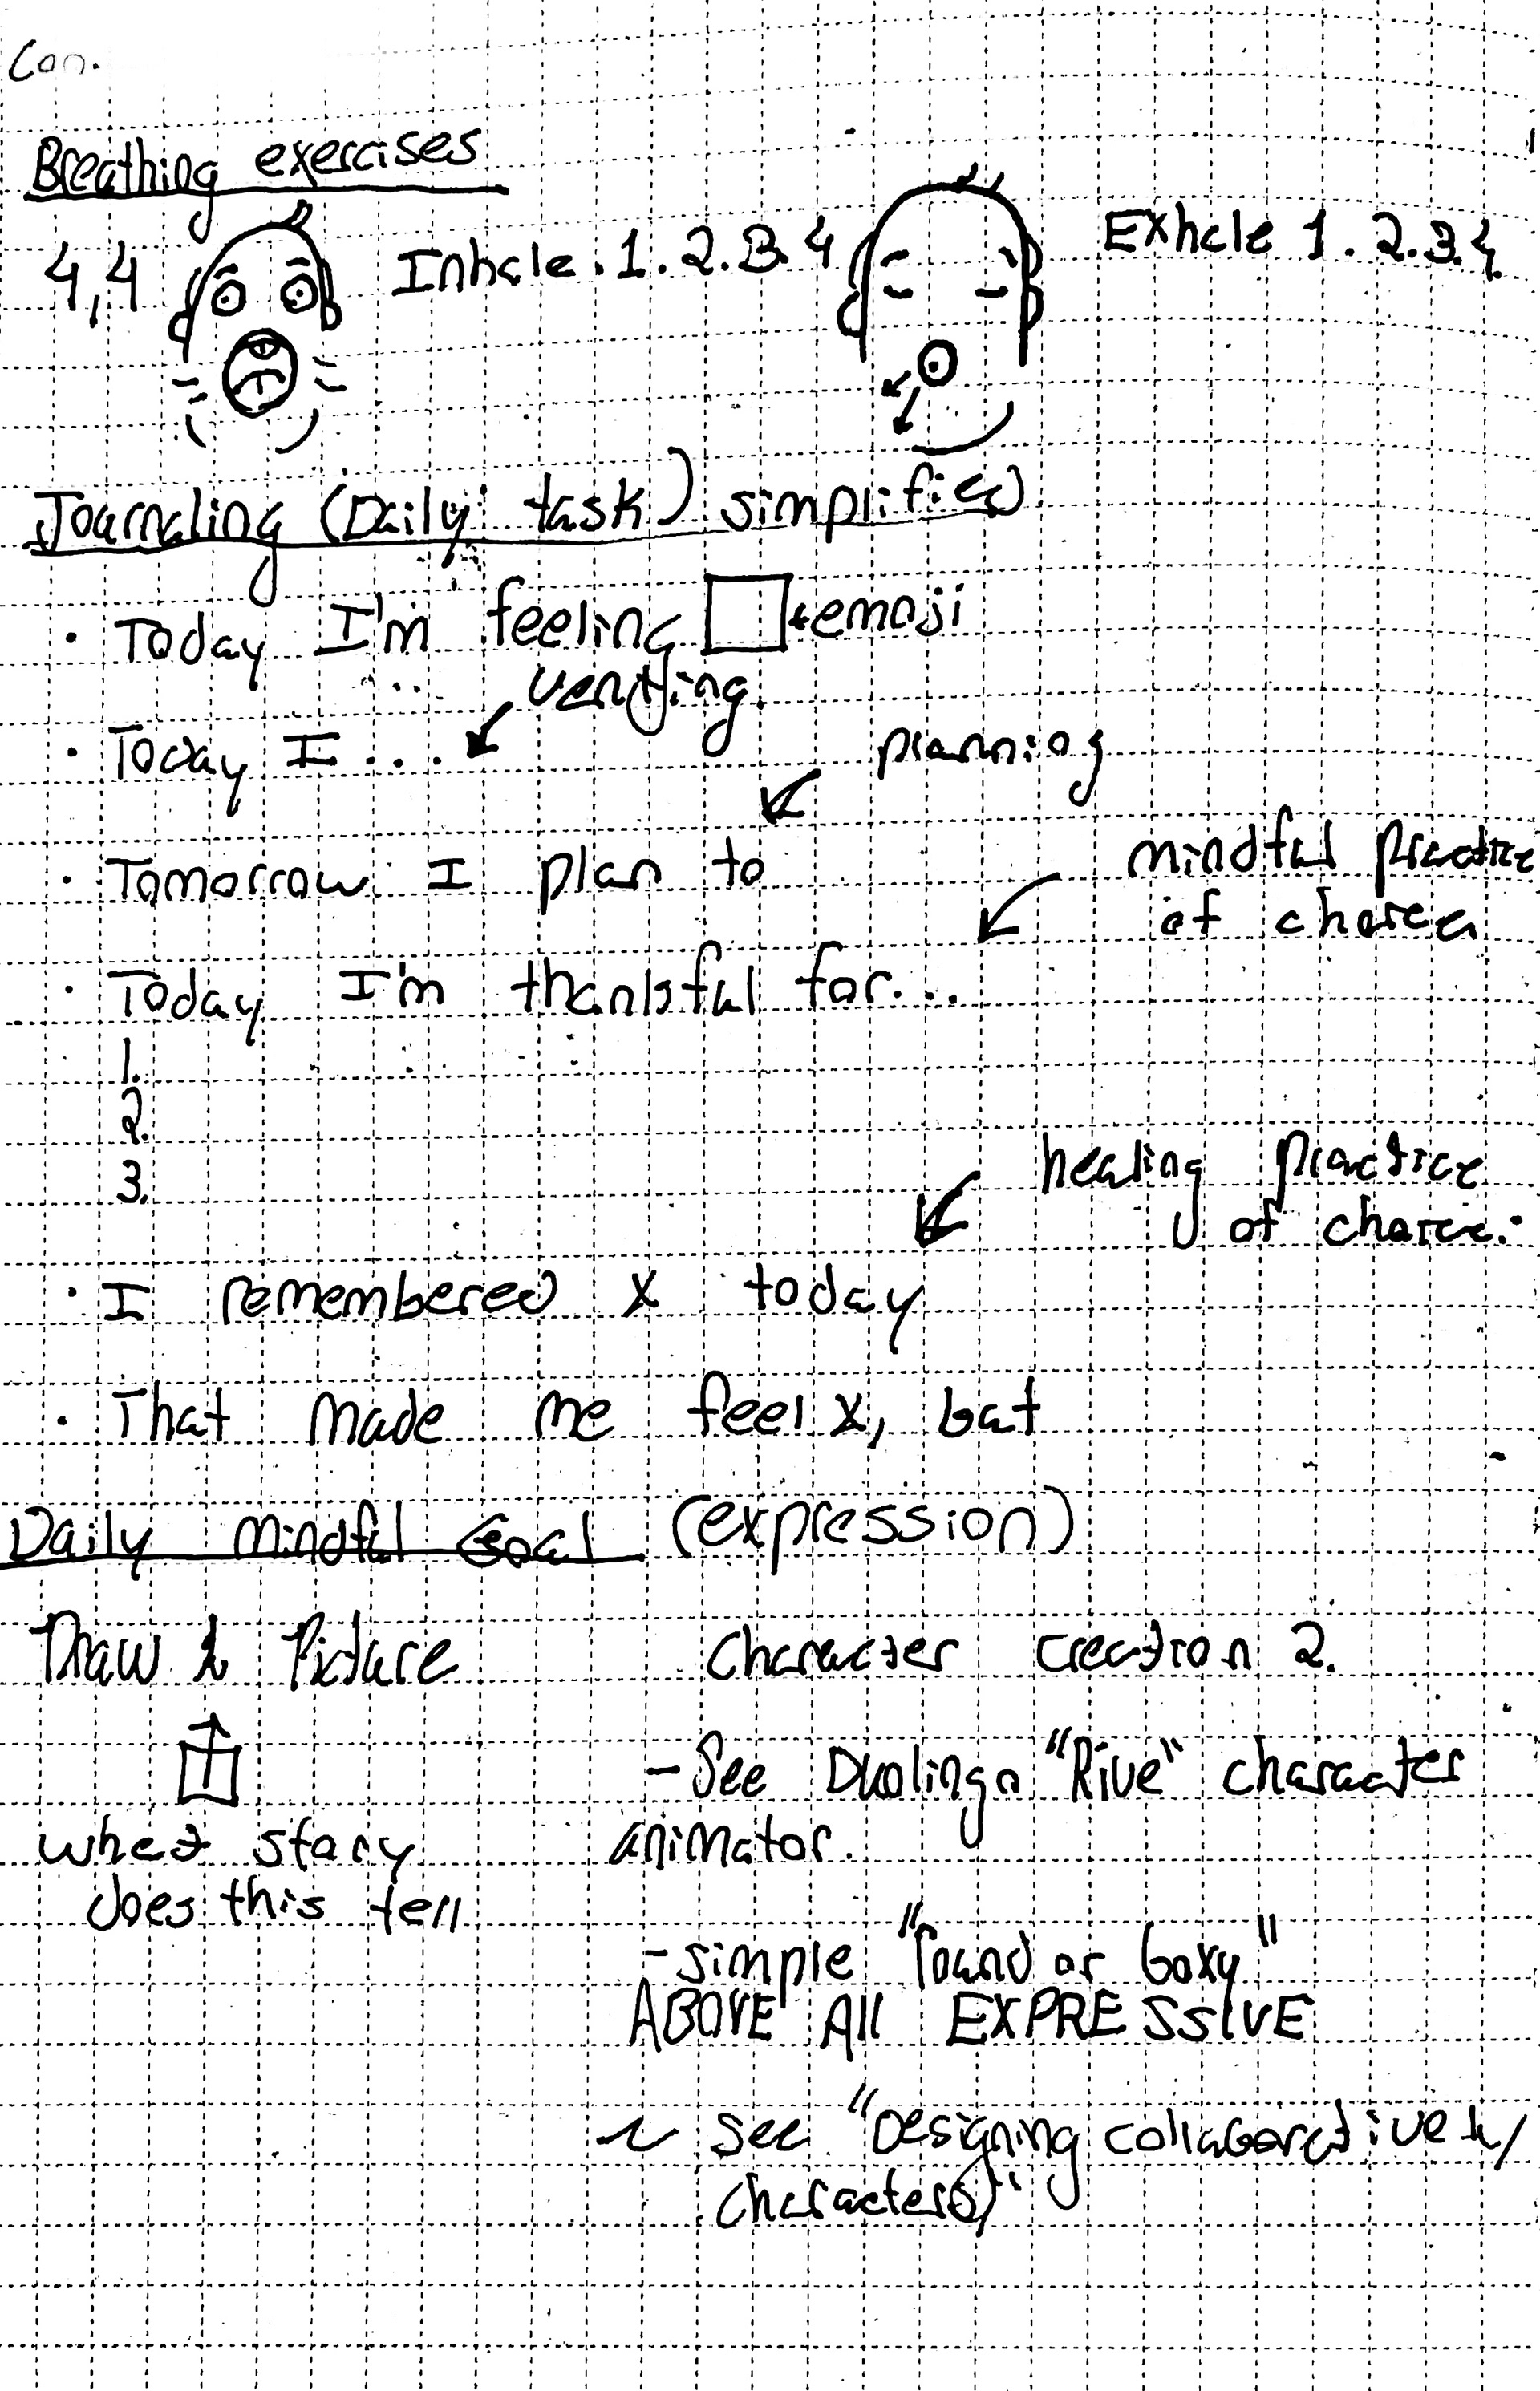 Con.
Breathing exercises
4,4 Inhale. 1. 2. 3. 4 Exhale 1. 2. 3. 4
Journaling (Daily task) simplified
· Today I'm feeling emoji
venting
· Today I ....
planning
· Tomorrow I plan to
mindful practice
of choice
· Today I'm thankful for...
1.
2.
3.
healing practice
of choice.
· I remembered X today
· That made me feel X, but
Daily Mindful Goal (expression)
Draw a Picture
what story
does this tell
Character creation 2.
- See Duolingo "Rive" character
animator.
- simple "round or boxy"
ABOVE All EXPRESSIVE
~ See "Designing collaboratively
characters)"